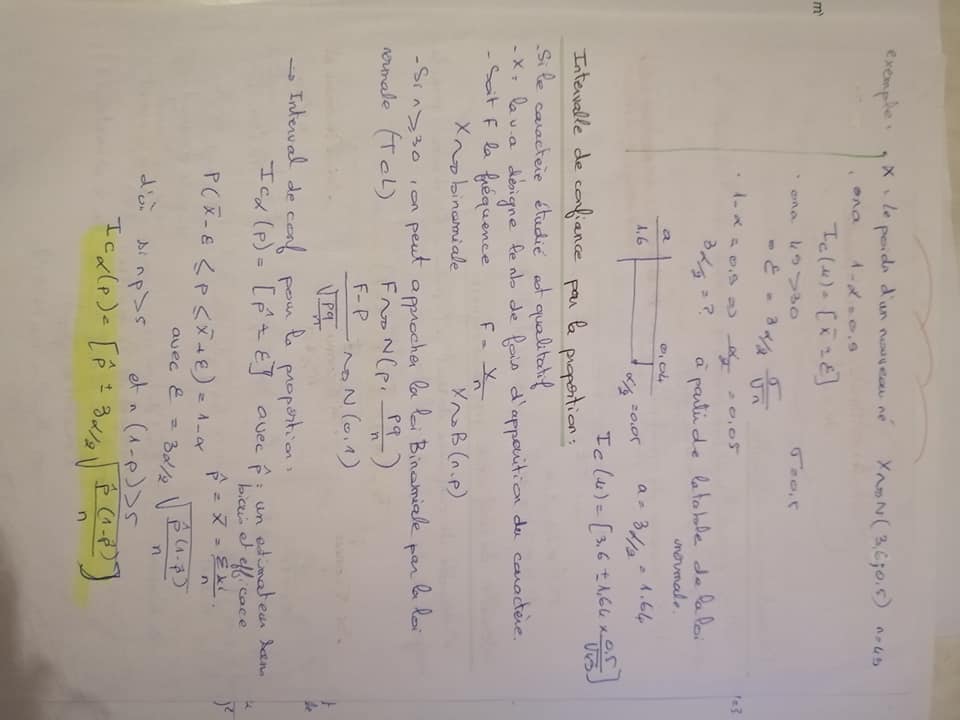 exemple : X : le poids d'un nouveau né X ~> N( 3,6 ; 0.5) n=49
. on a 1-α = 0.9
Ic(μ) = [x̄ ± ε]
. on a 49 > 30 σ = 0.5
=> ε = z α/2 σ/√n
. 1-α = 0.9 => α/2 = 0.05
z α/2 = ? à partir de la table de la loi
normale.
a 0,04
1,6 α/2 = 0.05 a = z α/2 = 1.64
Ic (μ) = [3.6 ± 1,64 × 0.5/√49]
Intervalle de confiance pour la proportion :
. Si le caractère étudié est qualitatif
- X : la v.a désigne le nb de fois d'apparition du caractère.
- Soit F la fréquence F = X/n
X ~> binomiale X ~> B (n.p)
- Si n ≥ 30 , on peut approcher la loi Binomiale par la loi
normale (TCL) F ~> N(p, pq/n)
(F-P)/√(pq/n) ~> N(0,1)
→ Interval de conf pour la proportion :
Icα(p) = [p̂ ± ε] avec p̂ : un estimateur sans
biais et efficace
P(x̄-ε ≤ p ≤ x̄+ε) = 1-α p̂ = x̄ = Σxi/n.
avec ε = z α/2 √(p̂(1-p̂)/n)
d'où si np>5 et n(1-p)>5
Icα(p) = [p̂ ± z α/2 √(p̂(1-p̂)/n)]